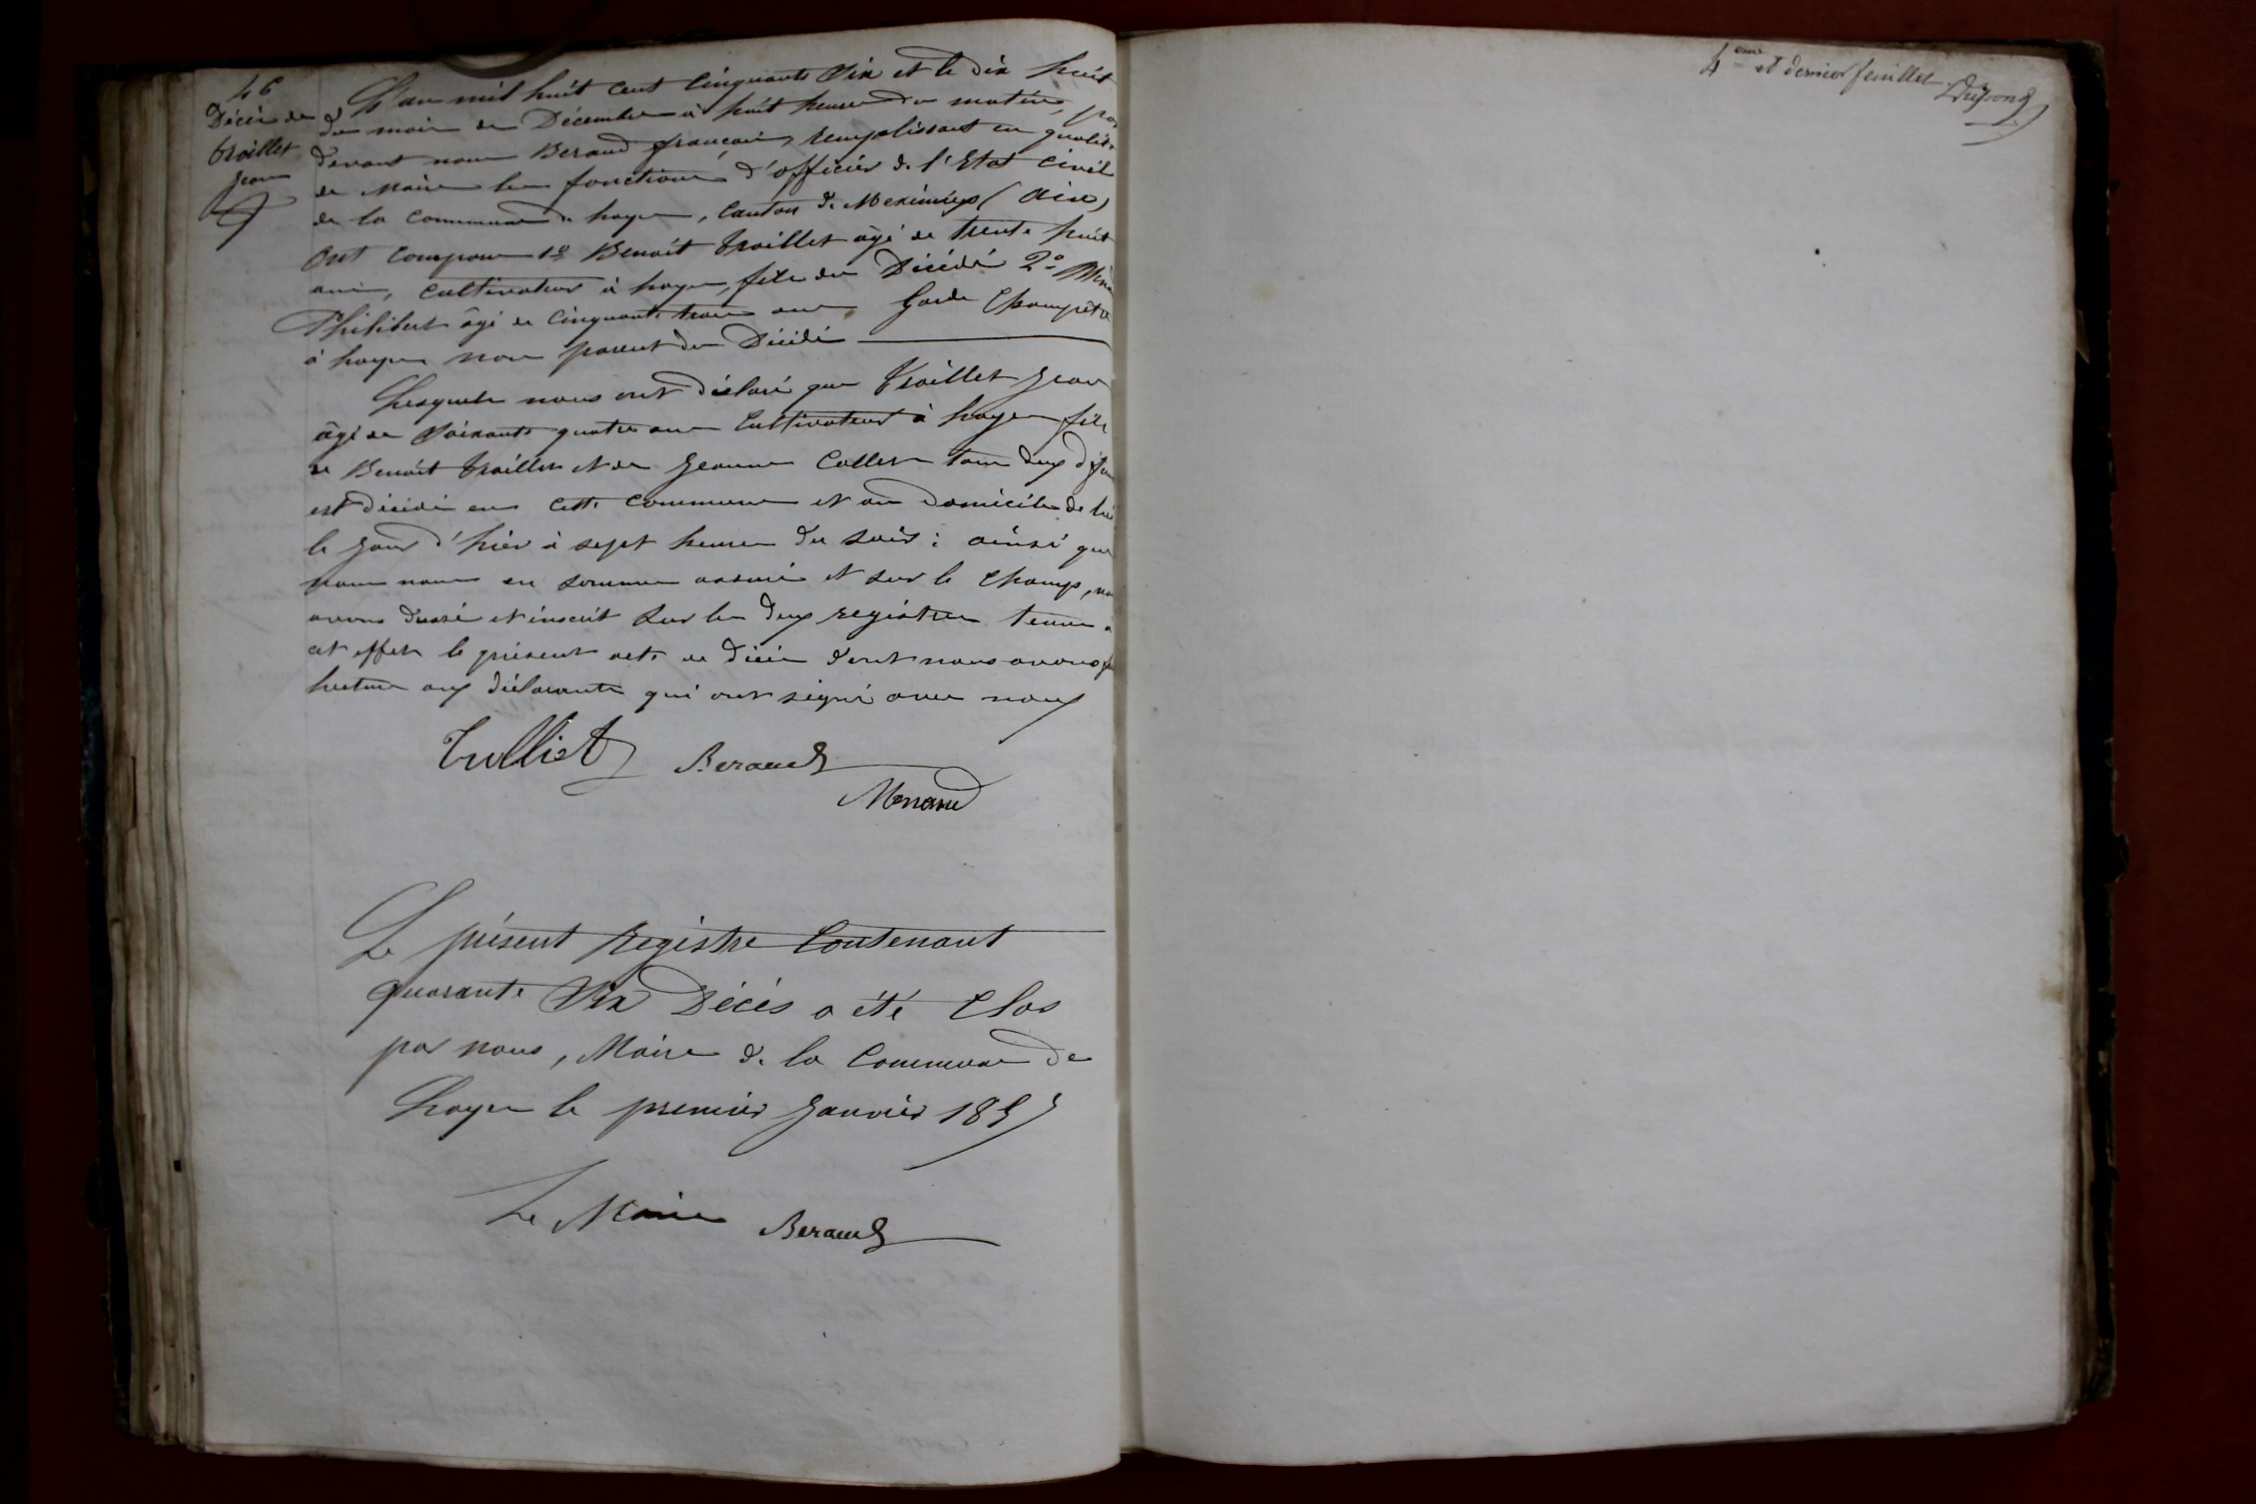 46
Décès de
Traillet
Jean
L'an mil huit cent cinquante Six et le dix huit
du mois de Décembre à huit heures du matin, par
devant nous Beraud françois, remplissant en qualité
de Maire les fonctions d'officier de l'Etat civil
de la commune de Loyes, canton de Meximieux (Ain)
Ont comparu 1° Benoît Traillet âgé de trente huit
ans, cultivateur à Loyes, fils du Décédé 2°
Philibert âgé de cinquante trois ans Garde Champêtre
à Loyes non parent du Décédé
Lesquels nous ont déclaré que Traillet Jean
âgé de Soixante quatre ans Cultivateur à Loyes fils
de Benoît Traillet et de Jeanne Collet tous deux
est décédé en cette commune et au Domicile de lui
le jour d'hier à sept heures du soir : ainsi que
nous nous en sommes assuré et sur le champ,
avons dressé et inscrit sur les deux registres tenus
cet effet le présent acte de décès dont nous avons
lecture aux déclarants qui ont signé avec nous
Tralliet Beraud
Menand
Le présent Registre Contenant
quarante Six Décès a été Clos
par nous, Maire de la Commune de
Loyes le premier Janvier 1857
Le Maire Beraud
4eme et dernier feuillet